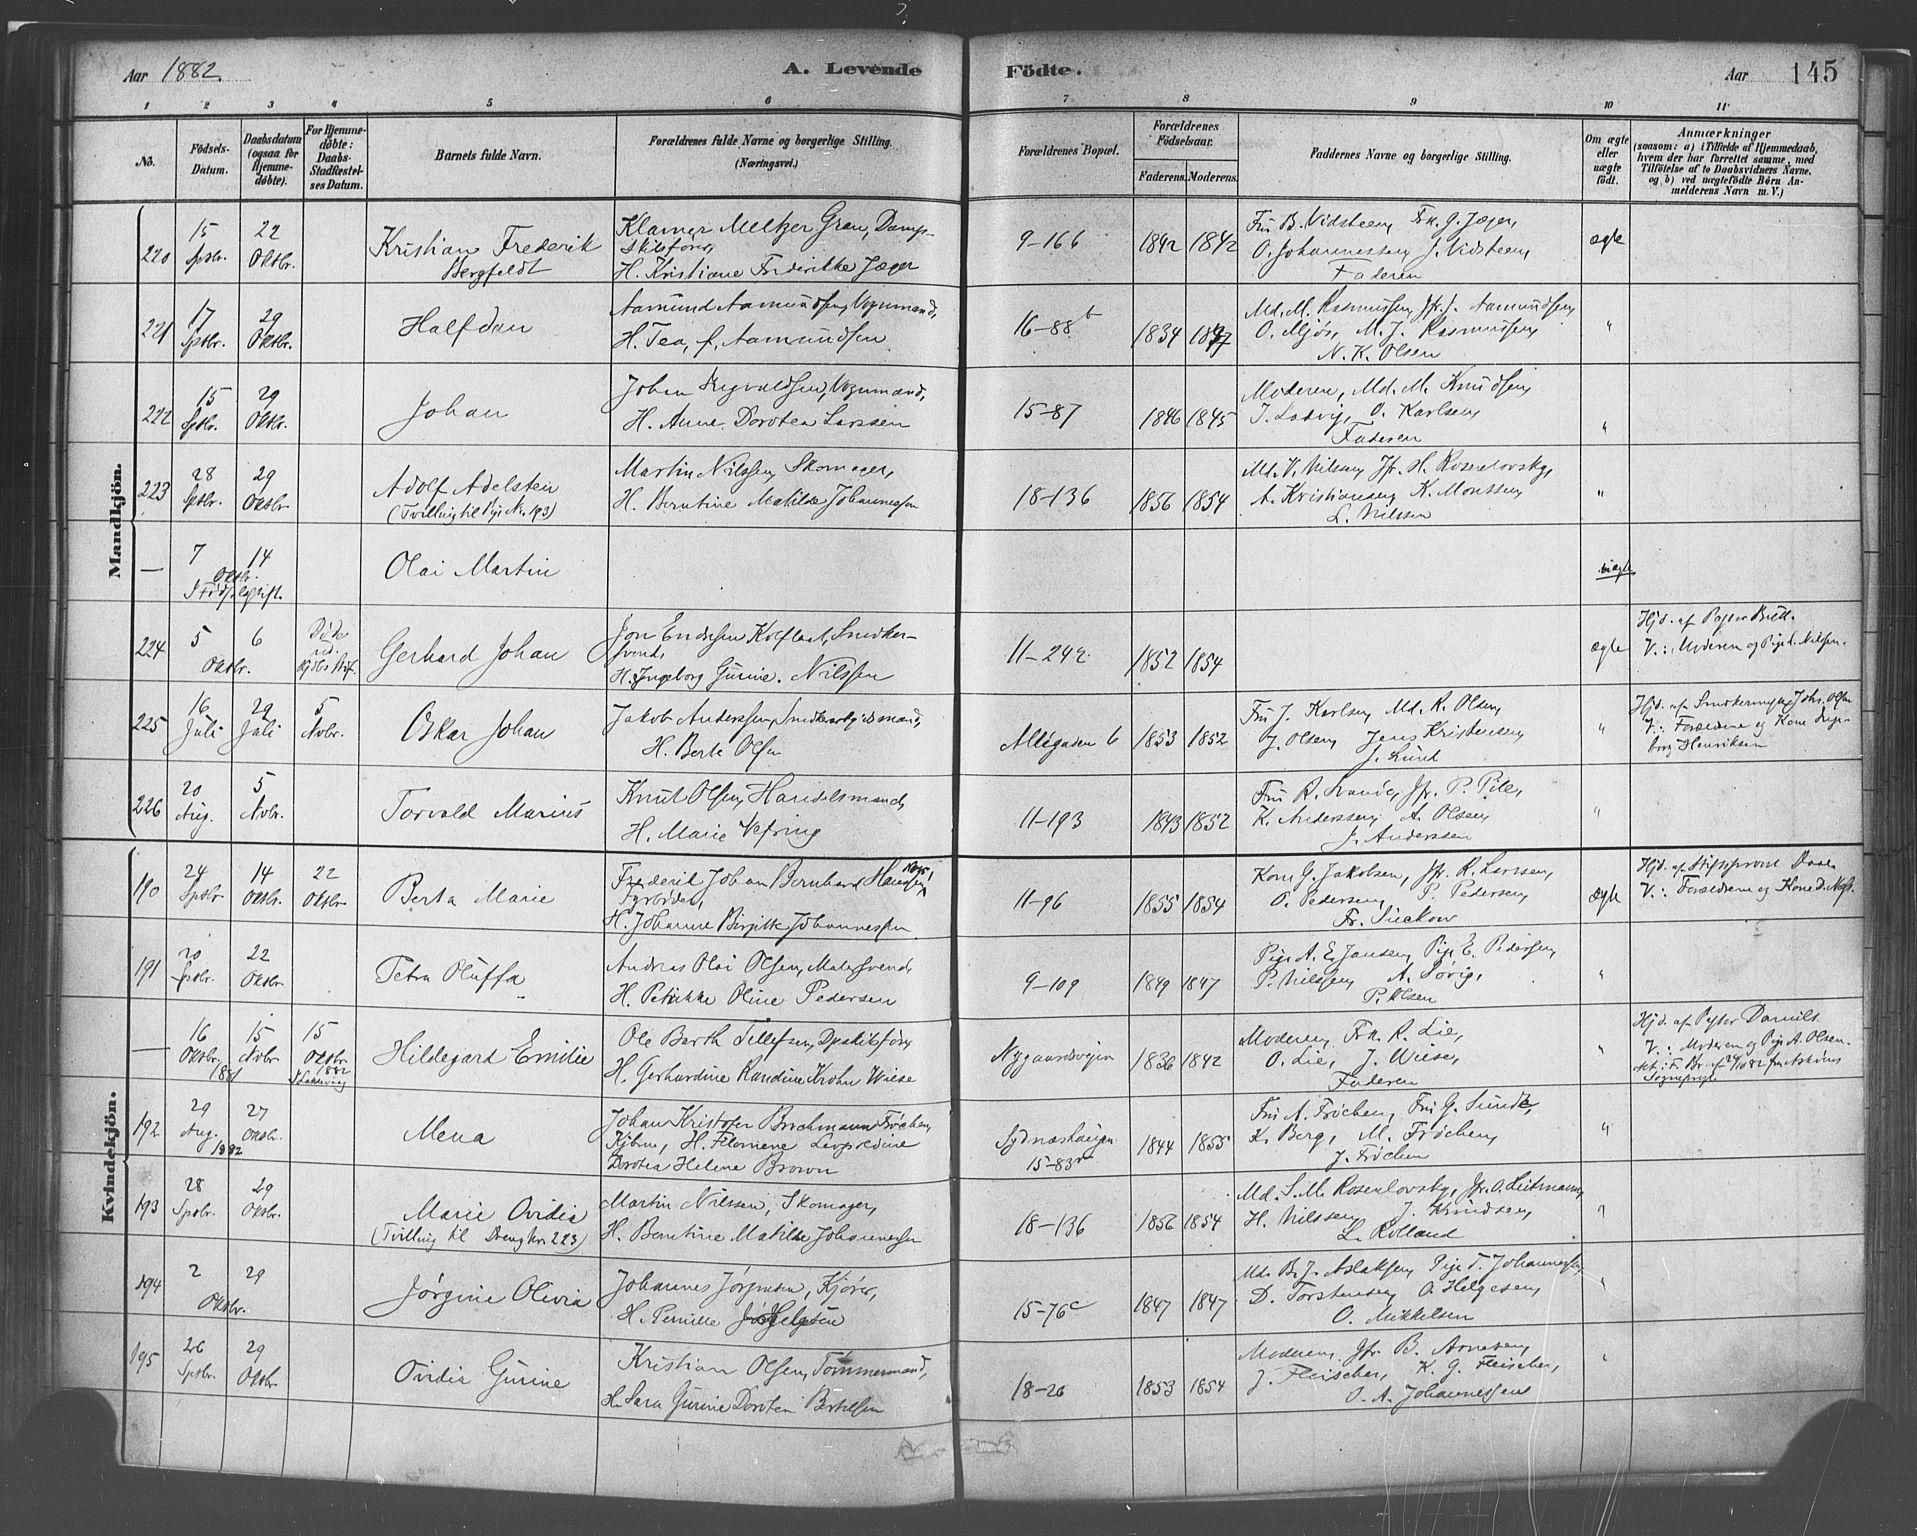 Aar 1882.
A. Levende Födte.
Aar 145
1 2 3 4 5 6 7 8 9 10 11
No.
Födsels-Datum.
Daabsdatum (ogsaa for Hjemmedøbte).
For Hjemmedøbte: Daabs-Stadfæstelses Datum.
Barnets fulde Navn.
Forældrenes fulde Navne og borgerlige Stilling.
(Næringsvei.)
Forældrenes Bopæl.
Forældrenes Födselsaar.
Faderens. Moderens.
Faddernes Navne og borgerlige Stilling.
Om ægte eller uægte födt.
Anmærkninger
(saasom: a) i Tilfælde af Hjemmedaab,
hvem der har forrettet samme, med
Tilföielse af to Daabsvidners Navne,
og b) ved uægtefödte Börn An-
melderens Navn m. V.)
Mandkjön.
220 15 Sptbr. 22 Oktbr. Kristian Frederik Bergfeldt
Klamer Meltzer Gran, Damp-
skibsfører,
H. Kristiane Frederikke Jæger
9-166 1842 1842
Fru B. Vidsteen, Frk. G. Jæger,
O. Johannessen, J. Vidsteen,
Faderen
ægte
221 17 Sptbr. 29 Oktbr. Halfdan
Aamund Aamundsen, Vognmand,
H. Tea, f. Aamundsen
16-88b 1834
Md. M. Rasmussen, Jfr. J. Aamundsen,
O. Mjøs, M. J. Rasmussen,
N. K. Olsen
"
222 15 Sptbr. 29 Oktbr. Johan
Johan Vognmand,
H. Anne Dorotea Larssen
15-87 1846 1845
Moderen, Md. M. Knudsen,
J. Ludvig, O. Karlsen,
Faderen
"
223 28 Sptbr. 29 Oktbr. Adolf Adelsten
(Tvilling til Pige No. 193)
Martin Nilssen, Skomager,
H. Berntine Matilde Johannessen
18-136 1856 1854
Md. V. Nilsen, Jfr. H. Rosenlovsky,
A. Kristiansen, K. Monssen,
L. Nilssen
"
— 7 14 Oktbr. Olai Martin
uægte
224 5 6 Oktbr. Gerhard Johan
Jon Endresen Snedker-
svend,
H. Ingeborg Gurine Nilssen
11-242 1852 1854
ægte
Hjd. af
V.: Moderen og Pige Nilssen.
225 16 Juli 29 Juli 5 Novbr. Oskar Johan
Jakob Anderssen, Snedker
H. Berte Olsen
Allégaden 6 1853 1852
Fru J. Karlsen, Md. R. Olsen,
J. Olsen, Jens Kristensen,
J. Lund
"
Hjd. af Johs. Olsen
V.: Forældrene og Kone Inge-
borg Henriksen
226 20 Aug. 5 Novbr. Torvald Marius
Knut Olsen, Handelsmand,
H. Marie Vefring
11-193 1843 1852
Fru R. P. Pile,
K. Anderssen, A. Olsen,
J. Anderssen
"
Kvindekjön.
190 24 Sptbr. 14 Oktbr. 22 Oktbr. Berta Marie
Frederik Johan Bernhard Hansen
Fyrbøder,
H. Johanne Birgitte Johannessen
11-96 1855 1854
Kone G. Jakobsen, Jfr. R. Larssen,
O. Pedersen, P. Pedersen,
Fr. Suckow
ægte
Hjd. af Stiftsprovst Daae
V.: Forældrene og Kone D.
191 20 Sptbr. 22 Oktbr. Petra Oluffa
Andreas Olai Olsen, Malersvend,
H. Petrikke Oline Pedersen
9-109 1849 1847
Pige A. E. Jansen, Pige E. Pedersen,
P. Nilssen, A. Søvig,
P. Olsen
"
— 16 Oktbr. 1881 15 Novbr. 15 Oktbr. 1882 Hildegard Emilie
Ole Barth Tellefsen, Dpskibsfører
H. Gerhardine Randine Krohn Wiese
Nygaardsveien 1836 1842
Moderen, Frk. R. Lie,
O. Lie, J. Wiese,
Faderen
"
Hjd. af
V.: Moderen og Pige A. Olsen.
192 29 Aug. 1882 27 Oktbr. Mena
Johan Kristofer Brochmann Frøchen,
Kjbm., H. Filomene Leopoldine
Dorotea Helene Brown
Sydnæshaugen
15-83 1844 1855
Fru A. Frøchen, Fru G. Sundt,
K. Berg, M. Frøchen,
J. Frøchen
"
193 28 Sptbr. 29 Oktbr. Marie Ovidia
(Tvilling til Dreng No. 223)
Martin Nilssen, Skomager,
H. Berntine Matilde Johannessen
18-136 1856 1854
Md. S. M. Rosenlovsky, Jfr. O. Leitmann,
H. Nilssen, J. Knudsen,
L. Rolland
"
194 2 29 Oktbr. Jørgine Olivia
Johannes Jørgensen, Kjører,
H. Pernille Helgesen
15-76c 1847 1847
Md. B. J. Aslaksen, Pige T. Johannessen,
D. Torstensen, O. Helgesen,
O. Mikkelsen
"
195 26 Sptbr. 29 Oktbr. Ovidia Gurine
Kristian Olsen, Tømmermand,
H. Sara Gurine Dorotea Bertelsen
18-26 1853 1854
Moderen, Jfr. B. Arnesen,
J. Fleischer, K. G. Fleischer,
O. A. Johannessen
"